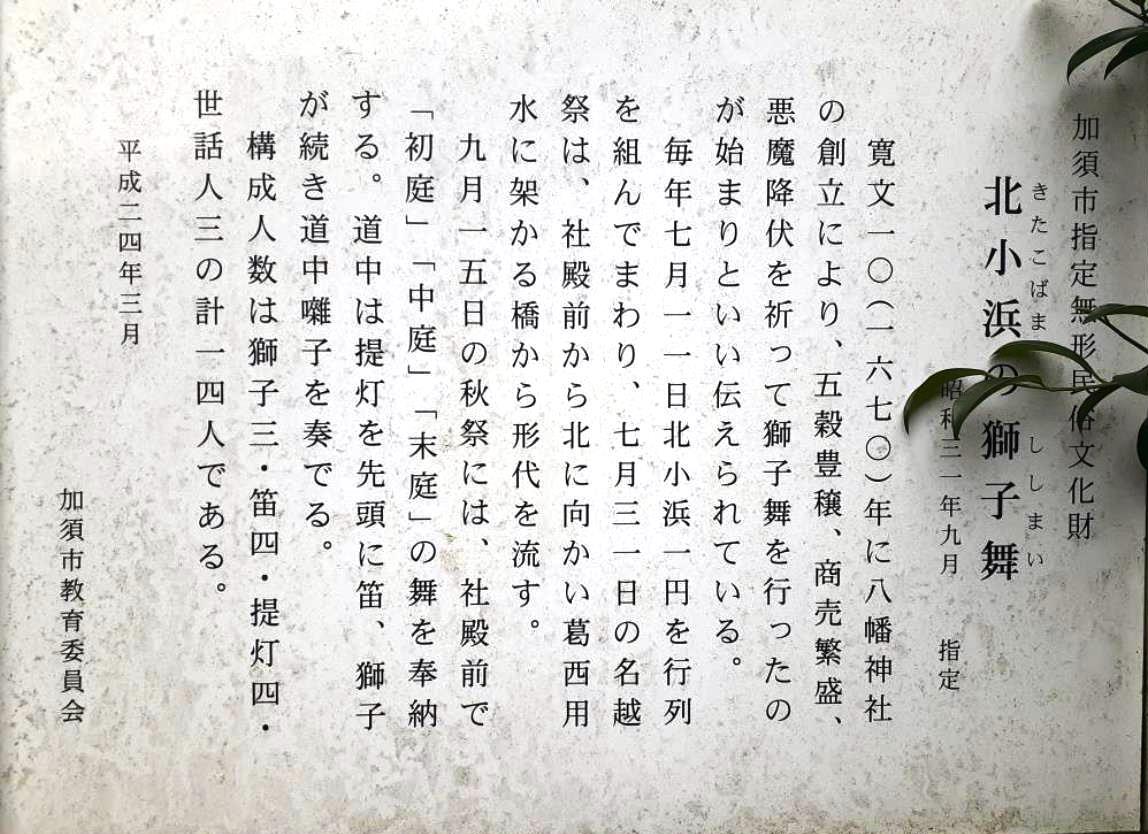 加須市指定無形民俗文化財
きたこばま ししまい
北小浜の獅子舞
昭和三一年九月 指定
寛文一〇(一六七〇)年に八幡神社
の創立により、五穀豊穣、商売繁盛、
悪魔降伏を祈って獅子舞を行ったの
が始まりといい伝えられている。
毎年七月一一日北小浜一円を行列
を組んでまわり、七月三一日の名越
祭は、社殿前から北に向かい葛西用
水に架かる橋から形代を流す。
九月一五日の秋祭には、社殿前で
「初庭」「中庭」「末庭」の舞を奉納
する。道中は提灯を先頭に笛、獅子
が続き道中囃子を奏でる。
構成人数は獅子三・笛四・提灯四・
世話人三の計一四人である。
平成二四年三月
加須市教育委員会